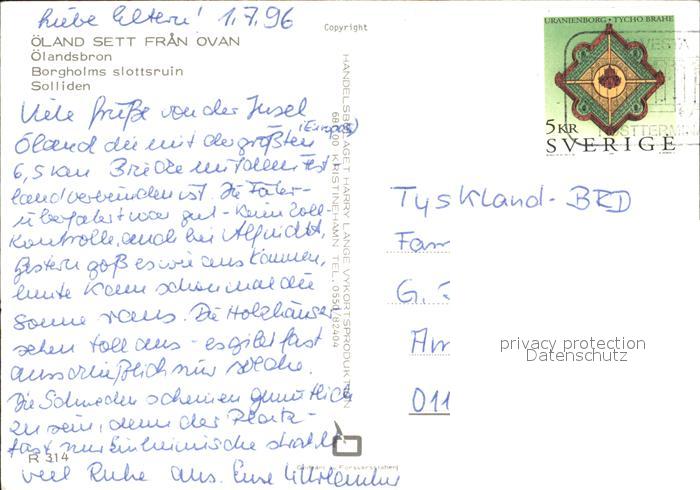 Liebe Eltern! 1.7.96
Copyright
ÖLAND SETT FRÅN OVAN
Ölandsbron
Borgholms slottsruin
Solliden
Viele Grüße von der Insel
Öland die mit der größten (Europas)
6,5 km Brücke mit dem Fest
land verbunden ist. Die Fähr-
überfahrt war gut - kein Zoll-
kontrolle, auch bei Alf nicht,
gestern goß es wie aus Kannen,
heute kam schon mal die
Sonne raus. Die Holzhäuser
sehen toll aus - es gibt fast
ausschließlich nur solche.
Die Schweden scheinen gemütlich
zu sein, denn der Platz
fast nur Einheimische strahlt
viel Ruhe aus. Eure
R 314
HANDELSBOLAGET HARRY LANGE VYKORTSPRODUKTION
681 00 KRISTINEHAMN TEL. 0550/82404
URANIENBORG · TYCHO BRAHE
5 KR
SVERIGE
Tyskland - BRD
Fam
G.
Am
011
privacy protection
Datenschutz